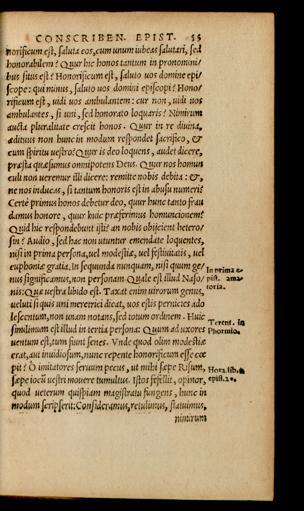 CONSCRIBEN. EPIST. 55
norificum est, saluta eos, cum unum iubeas salutari, sed
honorabilem? Quur hic honos tantum in pronomini
bus situs est? Honorificum est, saluto uos domine epi
scope: qui minus, saluto uos domini episcopi? Hono
rificum est, uidi uos ambulantem: cur non, uidi uos
ambulantes, si uni, sed honorato loquaris? Nimirum
aucta pluralitate crescit honos. Quur in re diuina,
ædituus non hunc in modum respondet sacrifico, &
cum spiritu uestro? Quur is deo loquens, audet dicere,
præsta quæsumus omnipotens Deus. Quur nos homun
culi non ueremur illi dicere: remitte nobis debita: &,
ne nos inducas, si tantum honoris est in abusu numeri?
Certè primus honos debetur deo, quur hunc tanto frau
damus honore, quur huic præferimus homuncionem?
Quid hic respondebunt isti? an nobis obijcient hetero
sin? Audio, sed hac non utuntur emendate loquentes,
nisi in prima persona, uel modestiæ, uel festiuitatis, uel
euphoniæ gratia. In secunda nunquam, nisi quum ge
nus significamus, non personam. Quale est illud Naso
In prima e
pist. ama
toria.
nis: Quæ uestra libido est. Taxat enim uirorum genus,
ueluti si quis uni meretrici dicat, uos estis pernicies ado
lescentum, non unam notans, sed totum ordinem. Huic
simillimum est illud in tertia persona: Quum aduxores
Terent. in
Phormio.
uentum est, tum fiunt senes. Vnde quod olim modestiæ
erat, aut inuidiosum, nunc repente honorificum esse cœ
pit? O imitatores seruum pecus, ut mihi sæpe Risum,
Hora. lib. 1.
epist. 2.
sæpe iocum uestri mouere tumultus. Istos fefellit, opinor,
quod ueterum quispiam magistratu fungens, hunc in
modum scripserit: Consideramus, retulimus, statuimus,
nimirum